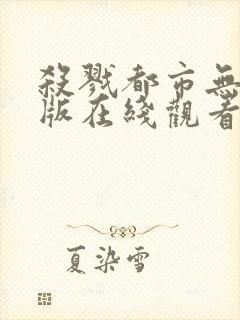 殺戮都市無
版在綫觀看
夏染雪